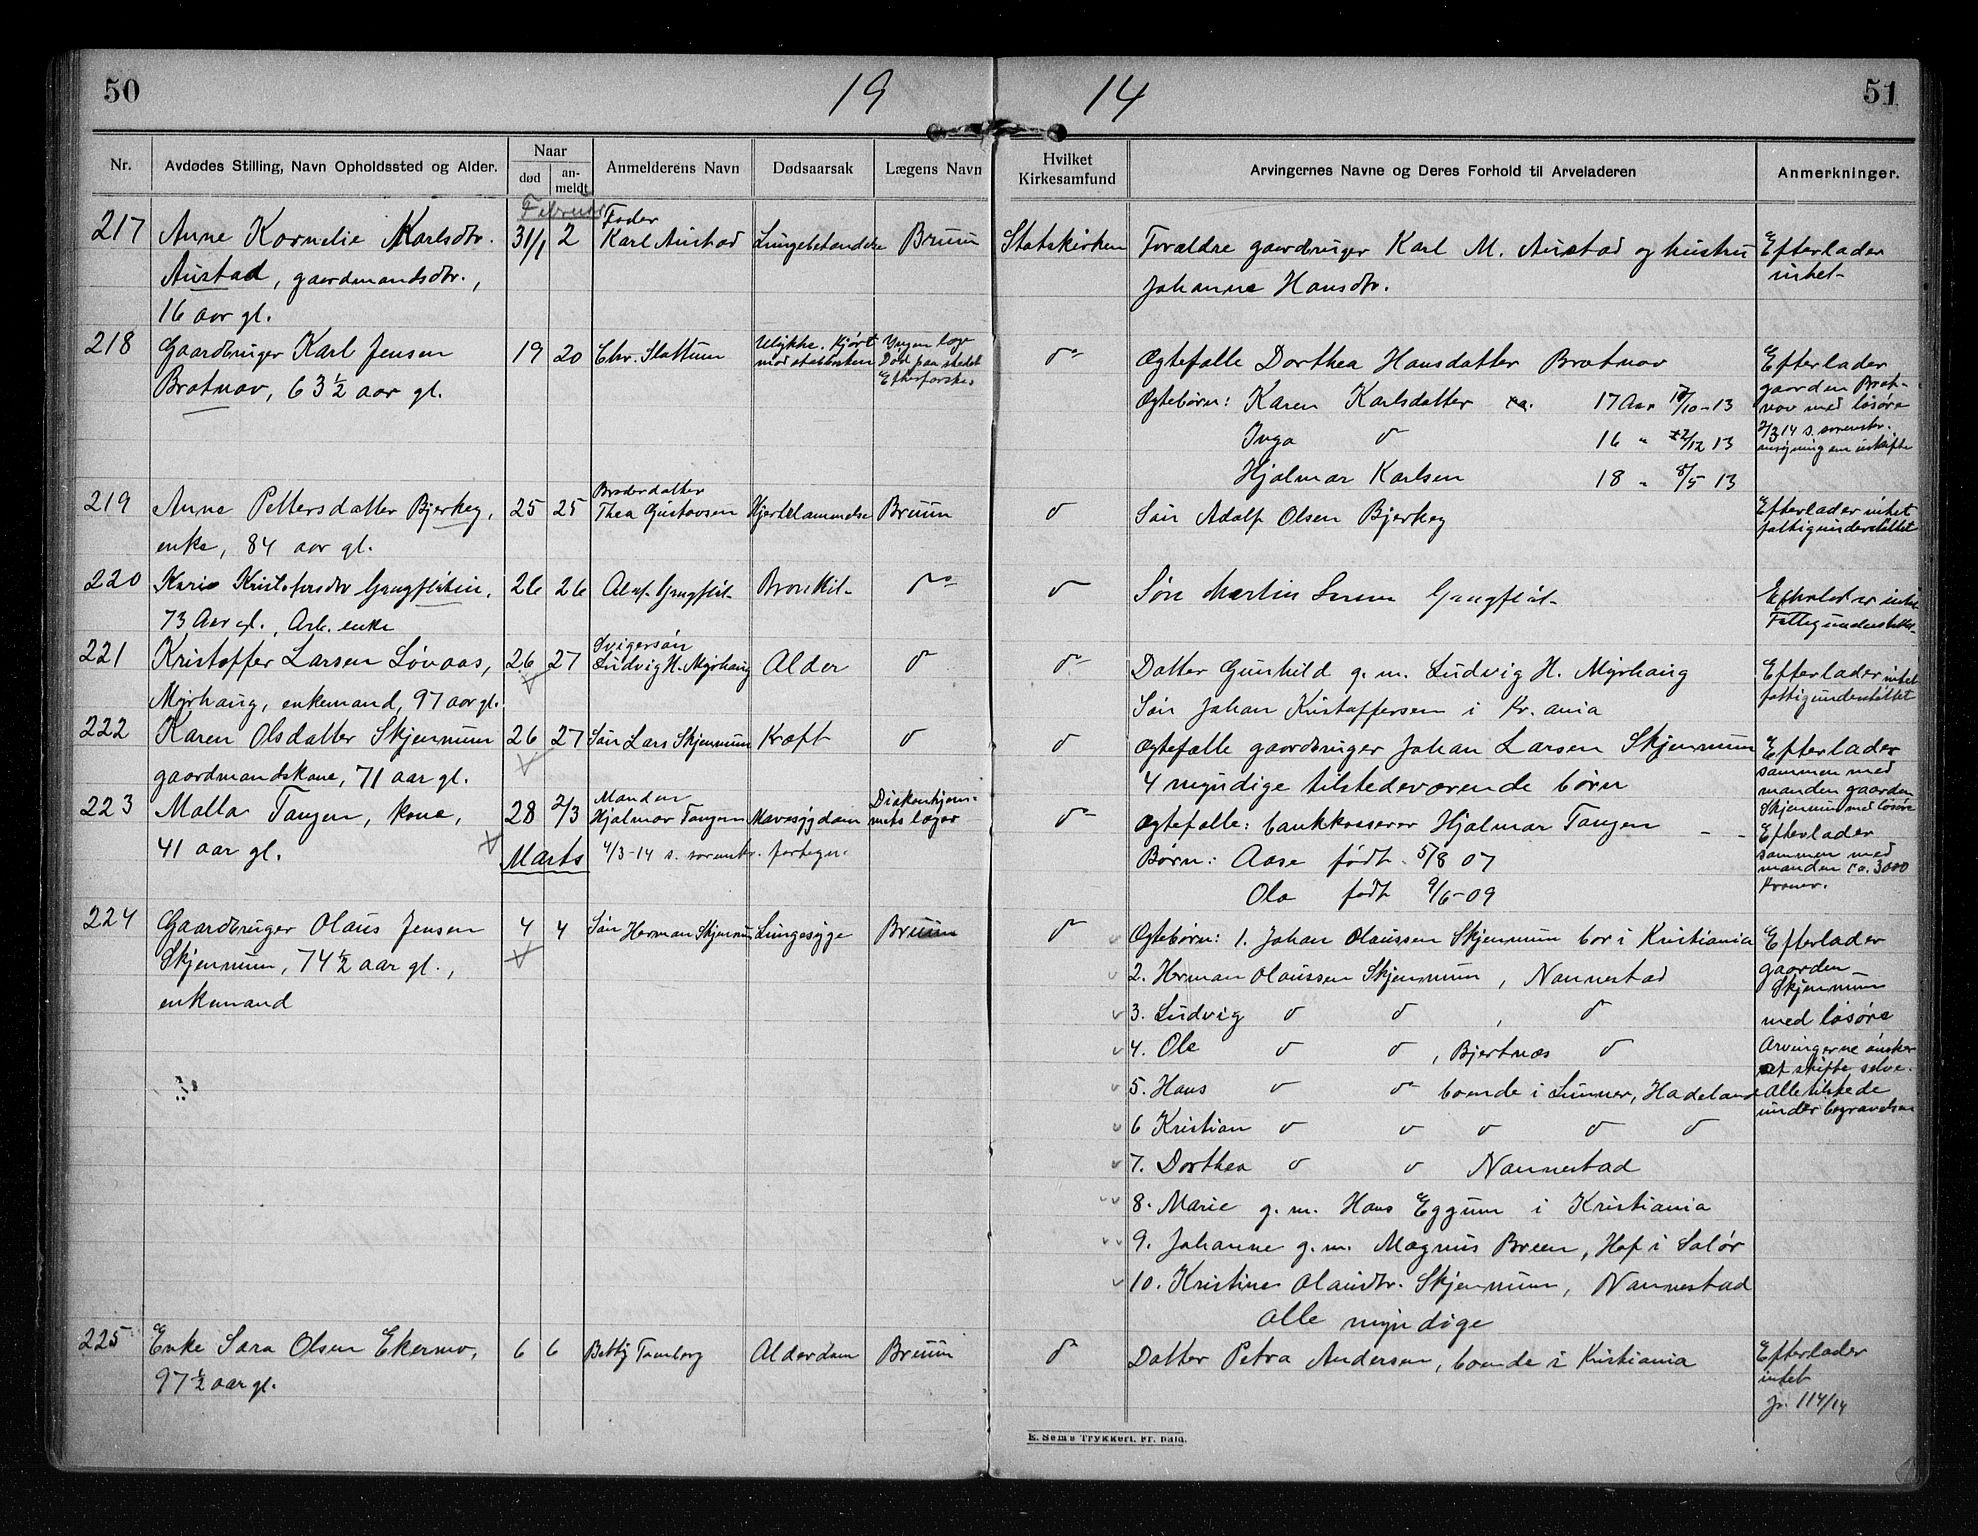 50
19
14
51
Nr.
Avdødes Stilling, Navn Opholdssted og Alder.
Naar
død
an-
meldt
Anmelderens Navn
Dødsaarsak
Lægens Navn
Hvilket
Kirkesamfund
Arvingernes Navne og Deres Forhold til Arveladeren
Anmerkninger.
Februar
217
Anne Kornelie Karlsdtr.
Austad, gaardmandsdtr.,
16 aar gl.
31/1
2
Fader
Karl Austad
Lungebetændelse
Bruun
Statskirken
Forældre gaardbruger Karl M. Austad og hustru
Johanne Hansdtr.
Efterlader
intet
218
Gaardbruger Karl Jensen
Bratnov, 63½ aar gl.
19
20
Chr. Slattum
Ulykke. Kjørt
mod stabbsten
Yngen læge
Død paa stedet
Efterforskes
do
Ægtefælle Dorthea Hansdatter Bratnov
Ægtebørn: Karen Karlsdatter 17 Aar /10-13
Inga do 16 " 22/12 13
Hjalmar Karlsen 18 " 8/5 13
Efterlader
gaarden Brat-
nov med løsøre
2/3 14 s. sorenskr.
219
Anne Pettersdatter Bjerkey,
enke, 84 aar gl.
25
25
Broderdatter
Thea Gustavsen
Hjerteslammelse
Bruun
do
Søn Adolf Olsen Bjerkey
Efterlader intet
fattigunderstøttet
220
Karie Kristofersdtr
73 Aar gl., Arb. enke
26
26
Bronkit
do
do
Søn Martin
Efterlader intet
221
Kristoffer Larsen Løvaas,
Myrhaug, enkemand, 97 aar gl.
26
27
Svigersøn
Ludvig H. Myrhaug
Alder
do
do
Datter Gunhild g. m. Ludvig H. Myrhaug
Søn Johan Kristoffersen i Kr.ania
Efterlader intet
fattigunderstøttet
222
Karen Olsdatter Skjennum
gaardmandskone, 71 aar gl.
26
27
Søn Lars Skjennum
Kræft
do
do
Ægtefælle gaardbruger Johan Larsen Skjennum
4 myndige tilstedeværende børn
Efterlader
sammen med
manden gaarden
Skjennum med løsøre
223
Malla Tangen, kone,
41 aar gl.
28
2/3
Manden
Hjalmar Tangen
Mavesygdom
Diakonhjem-
mets læger
do
Ægtefælle: bankkasserer Hjalmar Tangen
Børn: Aase født 5/8 07
Ola født 9/6-09
Efterlader
sammen med
manden ca. 3000
kroner.
Marts
4/3-14 s. sorenskr. fortegn.
224
Gaardbruger Olaus Jensen
Skjennum, 74½ aar gl.,
enkemand
4
4
Søn Herman Skjennum
Lungesyge
Bruun
do
Ægtebørn: 1. Johan Olaussen Skjennum bor i Kristiania
2. Herman Olaussen Skjennum, Nannestad
3. Ludvig do do, do
4. Ole do do, Bjertnæs do
5. Hans do do boende i Lunner, Hadeland
6 Kristian do do do do do
7. Dorthea do do Nannestad
8. Marie g. m. Hans Eggum i Kristiania
9. Johanne g. m. Magnus Breen, Hof i Solør
10. Kristine Olausdtr. Skjennum, Nannestad
Alle myndige
Efterlader
gaarden
Skjennum
med løsøre
Arvingerne ønsker
at skifte selve.
Alle tilstede
under begravelsen
225
Enke Sara Olsen Ekermo,
97½ aar gl.
6
6
Betty Tomberg
Alderdom
Bruun
do
Datter Petra Andersen, boende i Kristiania
Efterlader
intet
Jr. 114/14
E. Sem's Trykkeri. Fr.hald.